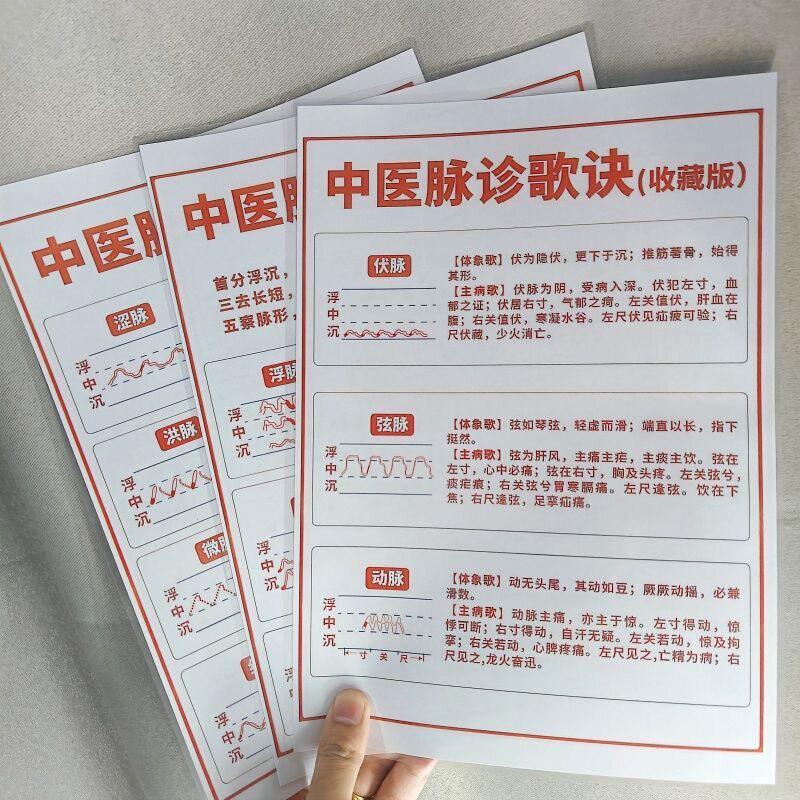 中医脉
涩脉
浮
中
沉
洪脉
浮
中
沉
微脉
浮
中
沉
浮
中
沉
中医脉
首分浮沉，
三去长短，
五察脉形，
浮脉
浮
中
沉
浮
中
沉
中医脉诊歌诀(收藏版)
伏脉
浮
中
沉
【体象歌】伏为隐伏，更下于沉；推筋著骨，始得
其形。
【主病歌】伏脉为阴，受病入深。伏犯左寸，血
郁之证；伏居右寸，气郁之疴。左关值伏，肝血在
腹；右关值伏，寒凝水谷。左尺伏见疝疲可验；右
尺伏藏，少火消亡。
弦脉
浮
中
沉
【体象歌】弦如琴弦，轻虚而滑；端直以长，指下
挺然。
【主病歌】弦为肝风，主痛主疟，主痰主饮。弦在
左寸，心中必痛；弦在右寸，胸及头疼。左关弦兮，
痰疟痕；右关弦兮胃寒膈痛。左尺逢弦。饮在下
焦；右尺逢弦，足挛疝痛。
动脉
浮
中
沉
寸 关 尺
【体象歌】动无头尾，其动如豆；厥厥动摇，必兼
滑数。
【主病歌】动脉主痛，亦主于惊。左寸得动，惊
悸可断；右寸得动，自汗无疑。左关若动，惊及拘
挛；右关若动，心脾疼痛。左尺见之,亡精为病；右
尺见之,龙火奋迅。